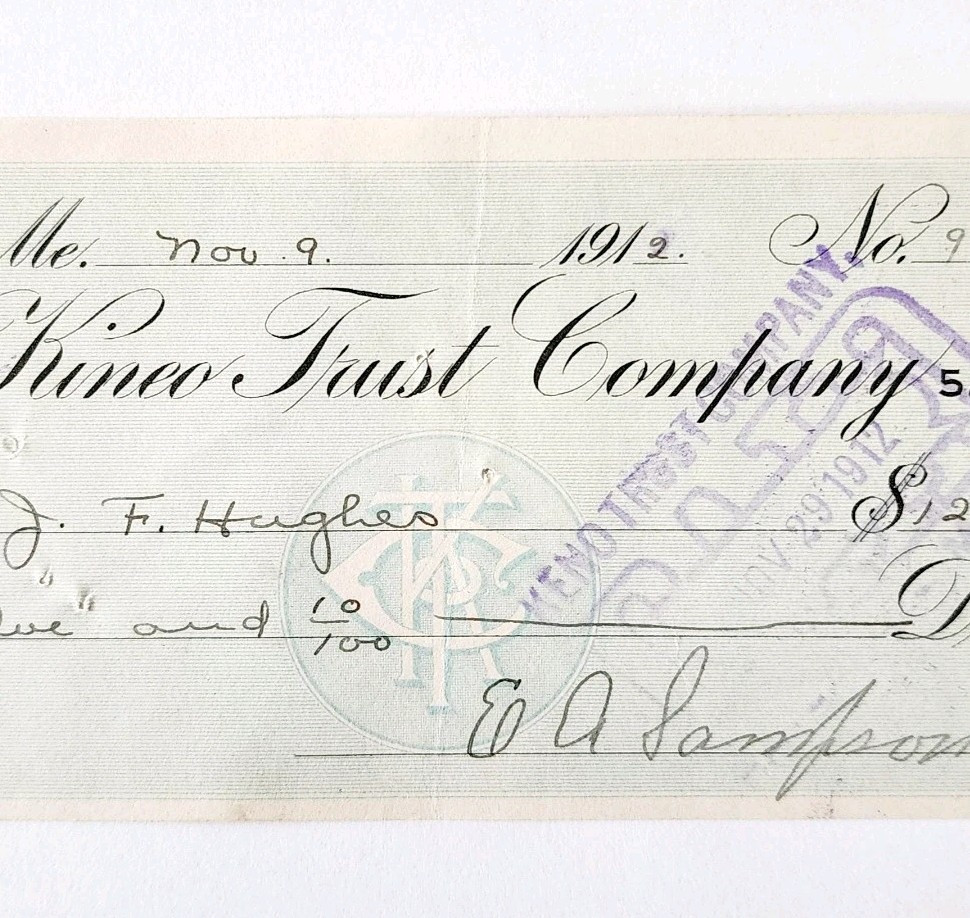 Me. Nov. 9. 1912. No. 9
Kineo Trust Company 5
J. F. Hughes $12
lve and 10/100 D
E A Sampson
KINEO TRUST COMPANY.
PAID
NOV 29 1912
KTC